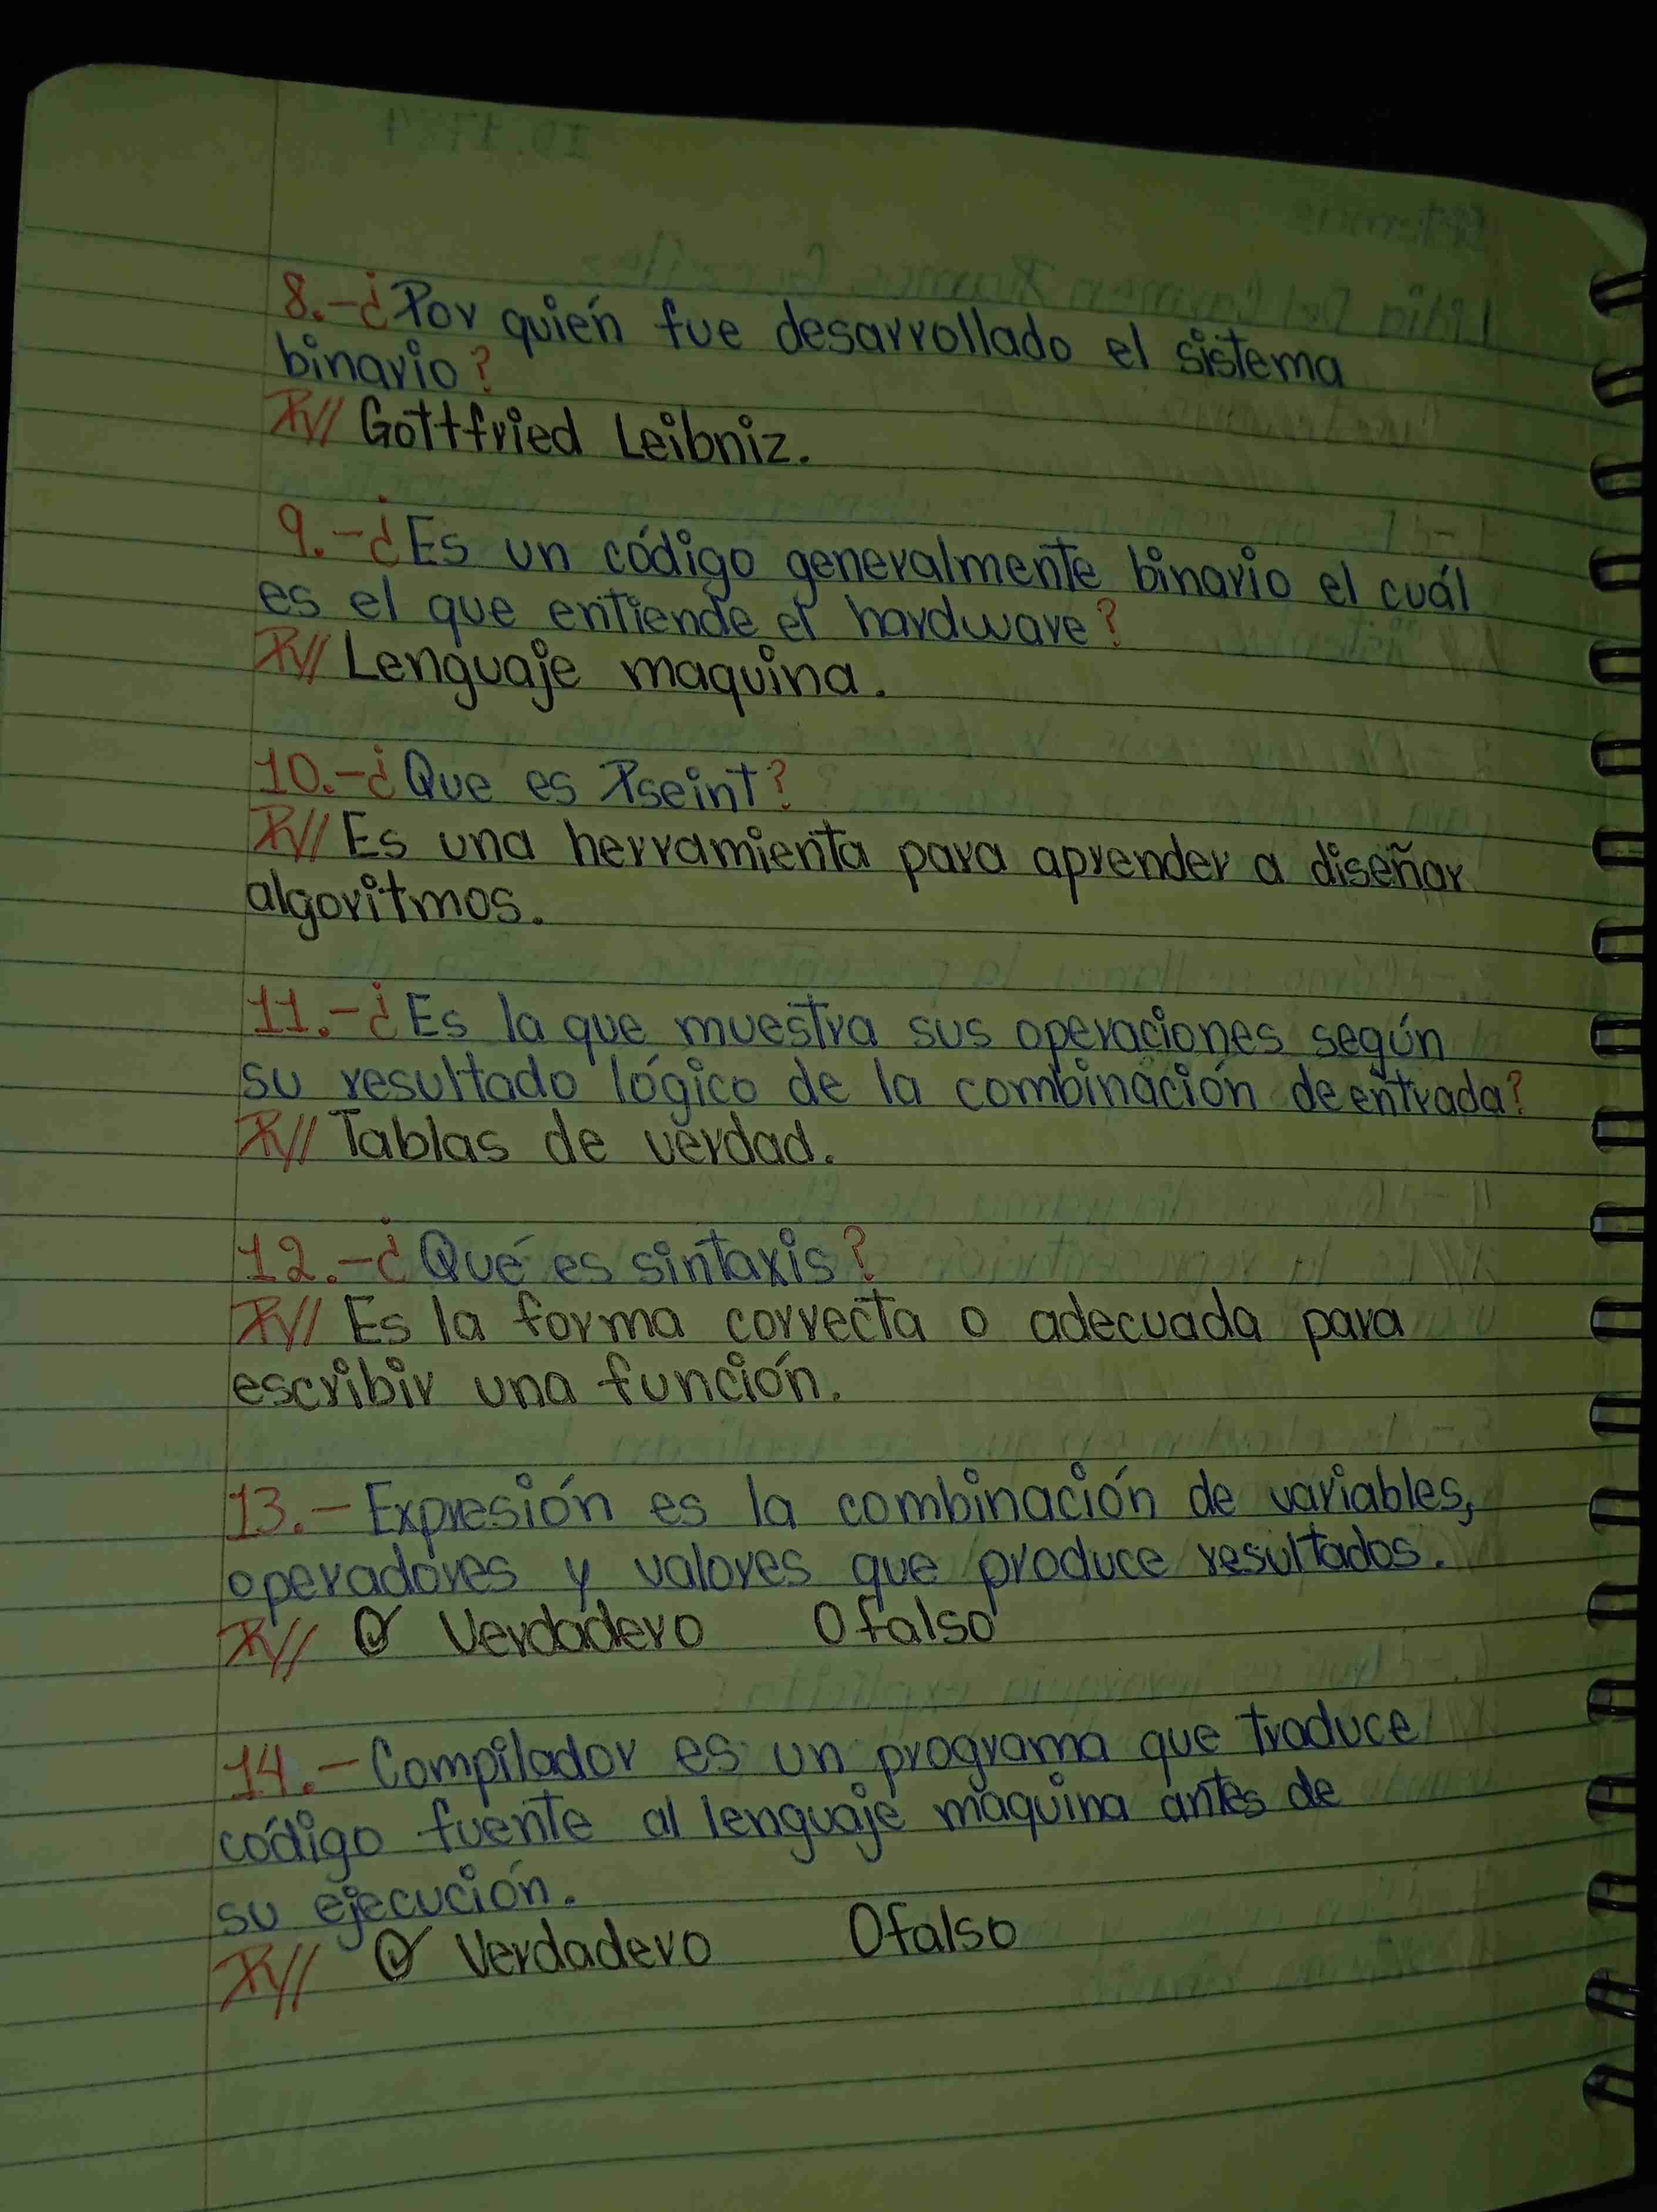 8.-¿Por quién fue desarrollado el sistema
binario?
R// Gottfried Leibniz.
9.-¿Es un código generalmente binario el cuál
es el que entiende el hardware?
R// Lenguaje maquina.
10.-¿Que es Pseint?
R// Es una herramienta para aprender a diseñar
algoritmos.
11.-¿Es la que muestra sus operaciones según
su resultado lógico de la combinación de entrada?
R// Tablas de verdad.
12.-¿Qué es sintaxis?
R// Es la forma correcta o adecuada para
escribir una función.
13.- Expresión es la combinación de variables,
operadores y valores que produce resultados.
R// Verdadero O falso
14.- Compilador es un programa que traduce
código fuente al lenguaje maquina antes de
su ejecución.
R// Verdadero O falso